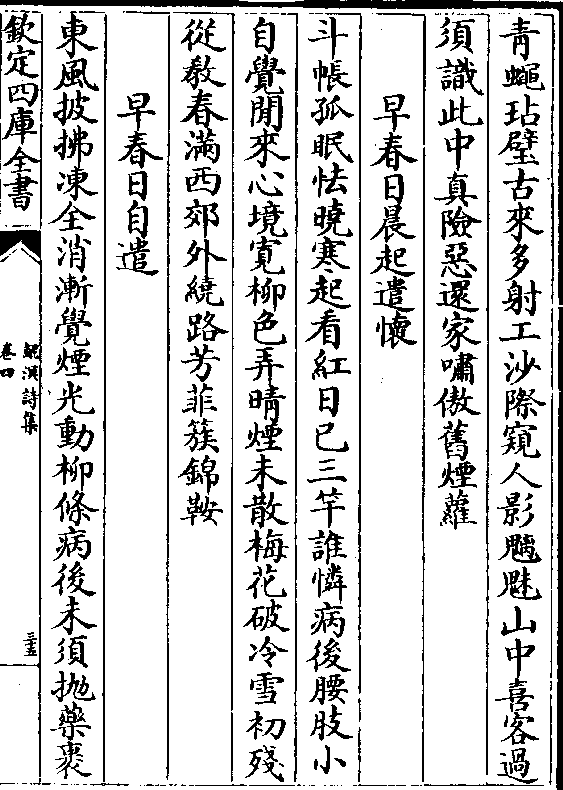 青蠅玷璧古來多射工沙際窺人影魑魅山中喜客過
須識此中真險惡還家嘯傲舊煙蘿
早春日晨起遣懷
斗帳孤眠怯曉寒起看紅日已三竿誰憐病後腰肢小
自覺閒來心境寛柳色弄晴煙未散梅花破冷雪初殘
從教春滿西郊外繞路芳菲簇錦鞍
早春日自遣
東風披拂凍全消漸覺煙光動柳條病後未須抛藥裹
欽定四庫全書
鯤溟詩集
卷四
三五